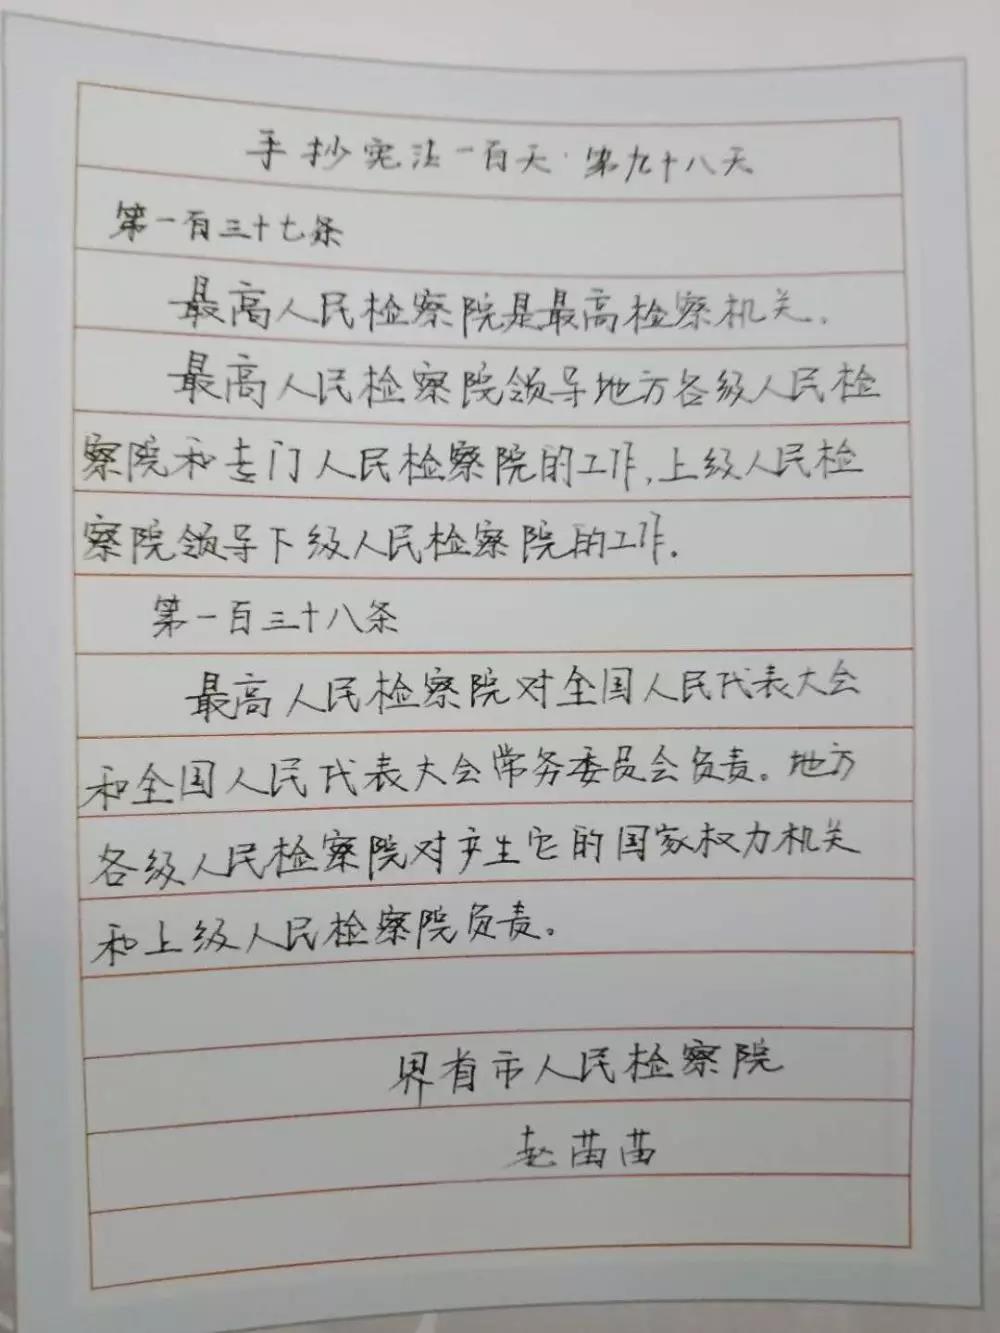 手抄宪法一百天·第九十八天
第一百三十七条
最高人民检察院是最高检察机关。
最高人民检察院领导地方各级人民检
察院和专门人民检察院的工作,上级人民检
察院领导下级人民检察院的工作。
第一百三十八条
最高人民检察院对全国人民代表大会
和全国人民代表大会常务委员会负责。地方
各级人民检察院对产生它的国家权力机关
和上级人民检察院负责。
界首市人民检察院
赵苗苗